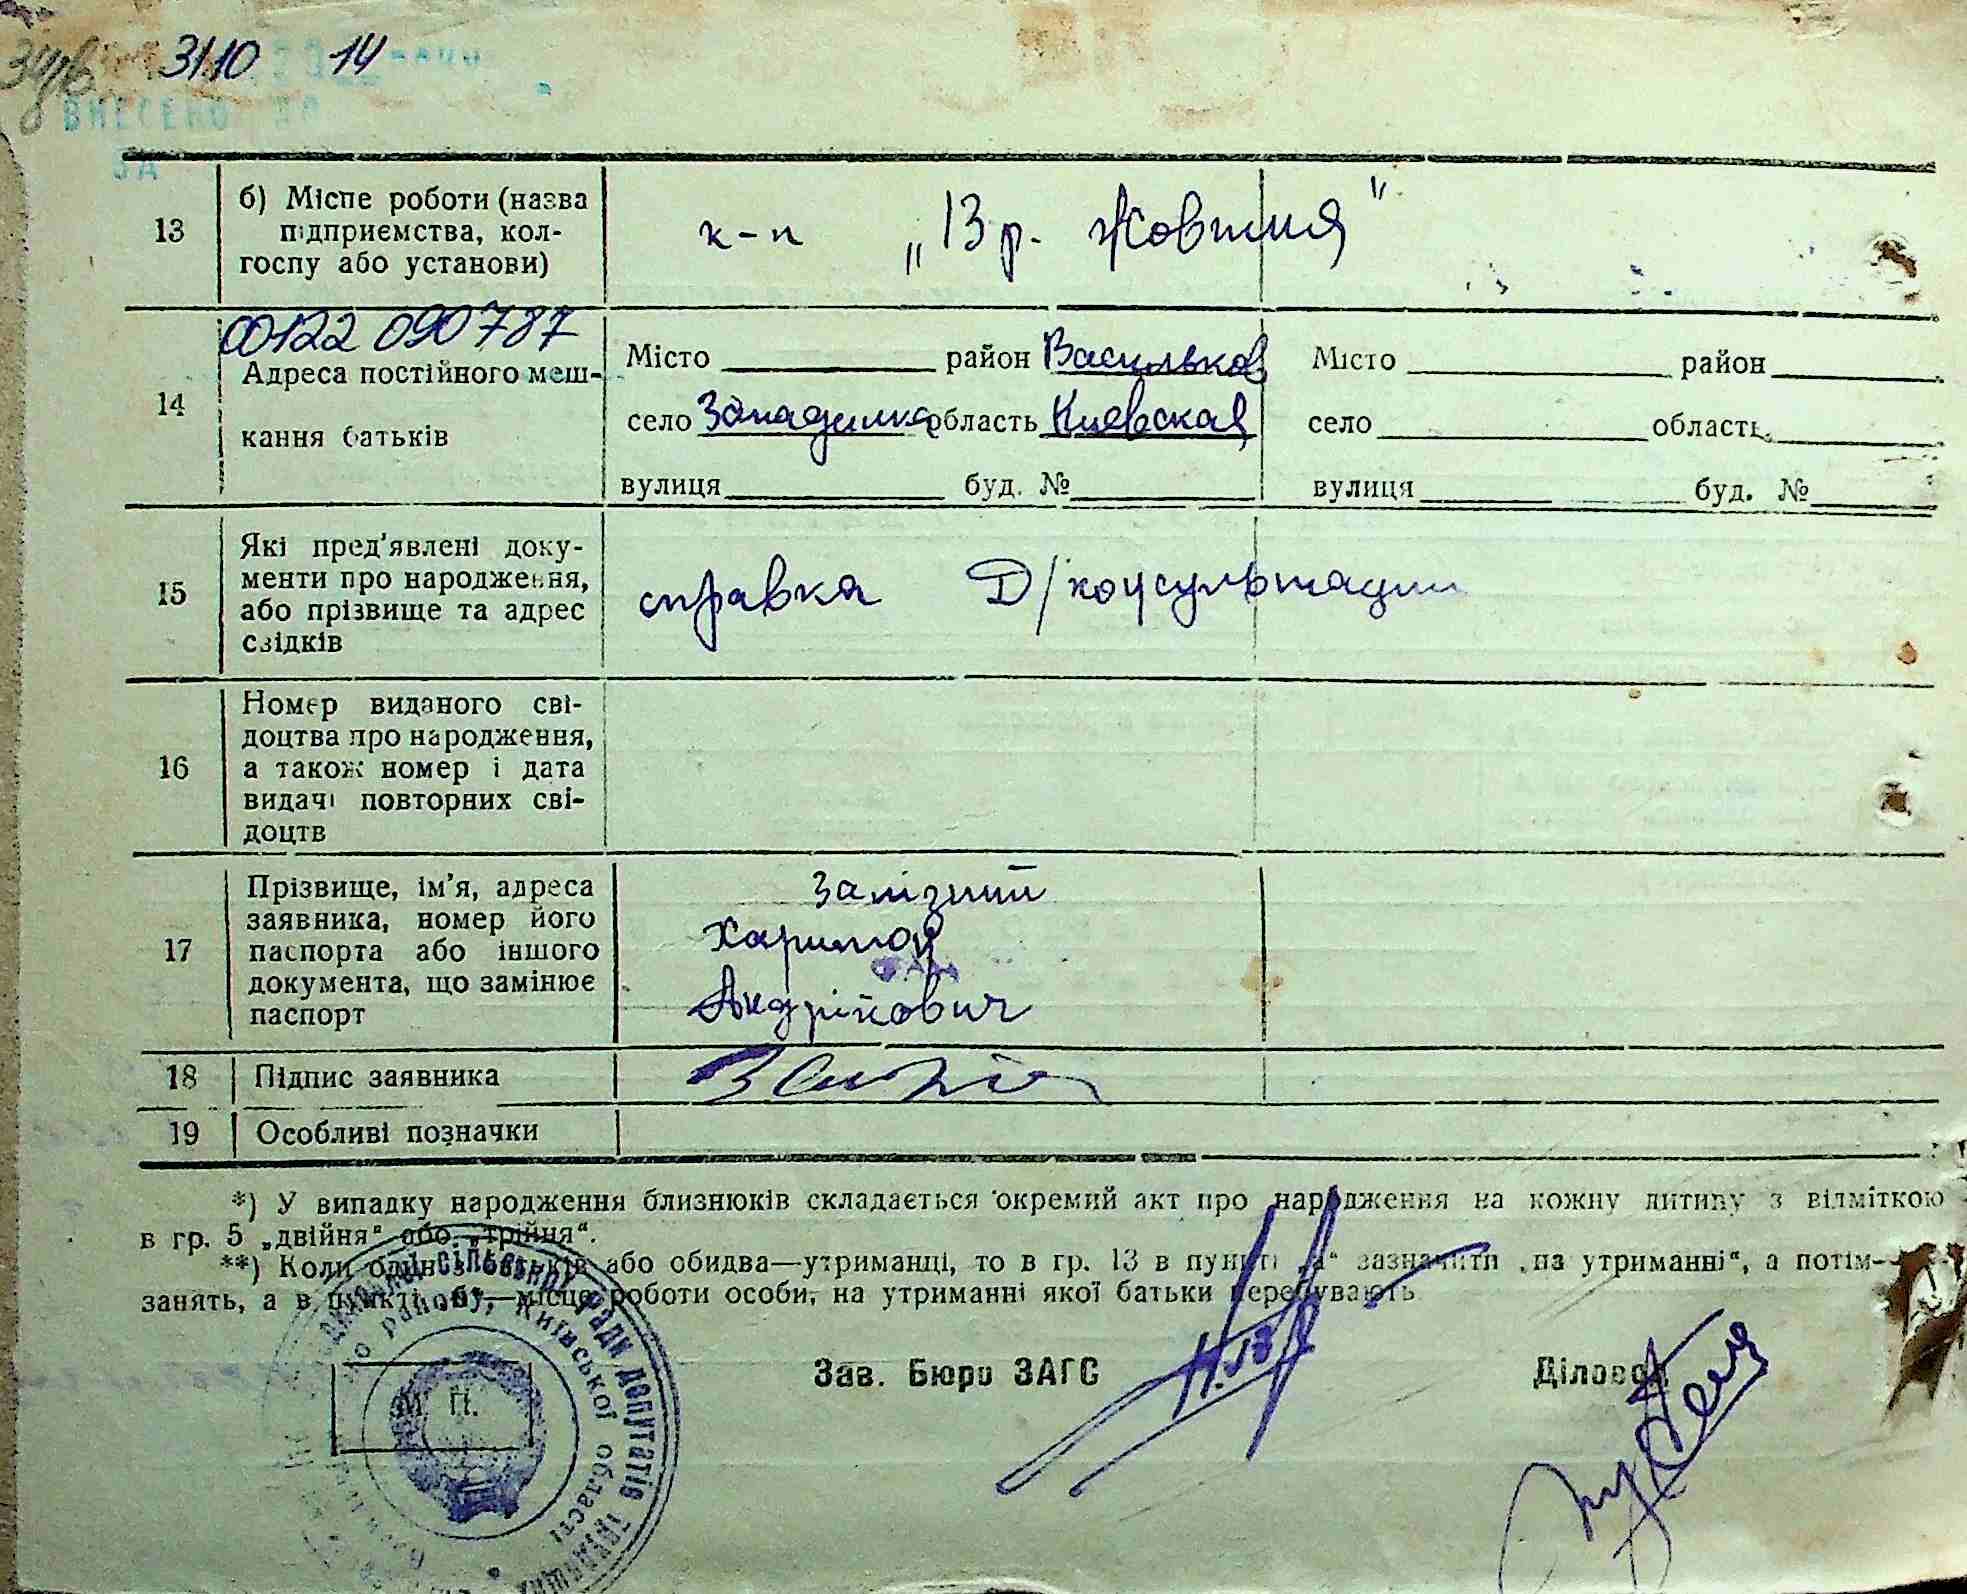 Зув. 3110 14
ВНЕСЕНО ДО
ЗА
13 б) Місце роботи (назва підприємства, кол-
госпу або установи)
к-п „13 р. Жовтня"
00122 090787
14 Адреса постійного меш-
кання батьків
Місто район Васильков
село Западинка область Киевская
вулиця буд. №
Місто район
село область
вулиця буд. №
15 Які пред'явлені доку-
менти про народження,
або прізвище та адрес
свідків
справка Д/консультации
16 Номер виданого сві-
доцтва про народження,
а також номер і дата
видачі повторних сві-
доцтв
17 Прізвище, ім'я, адреса
заявника, номер його
паспорта або іншого
документа, що замінює
паспорт
Залізний
Харитон
Андрійович
18 Підпис заявника
19 Особливі позначки
*) У випадку народження близнюків складається окремий акт про народження на кожну дитину з відміткою
в гр. 5 „двійня“ або „трійня“.
**) Коли один з батьків або обидва—утриманці, то в гр. 13 в пункті „а“ зазначити „на утриманні“, а потім—
занять, а в пункті „б“,—місце роботи особи, на утриманні якої батьки перебувають
Зав. Бюро ЗАГС Діловод
М. П.
сільської ради депутатів трудящих
району, Київської області